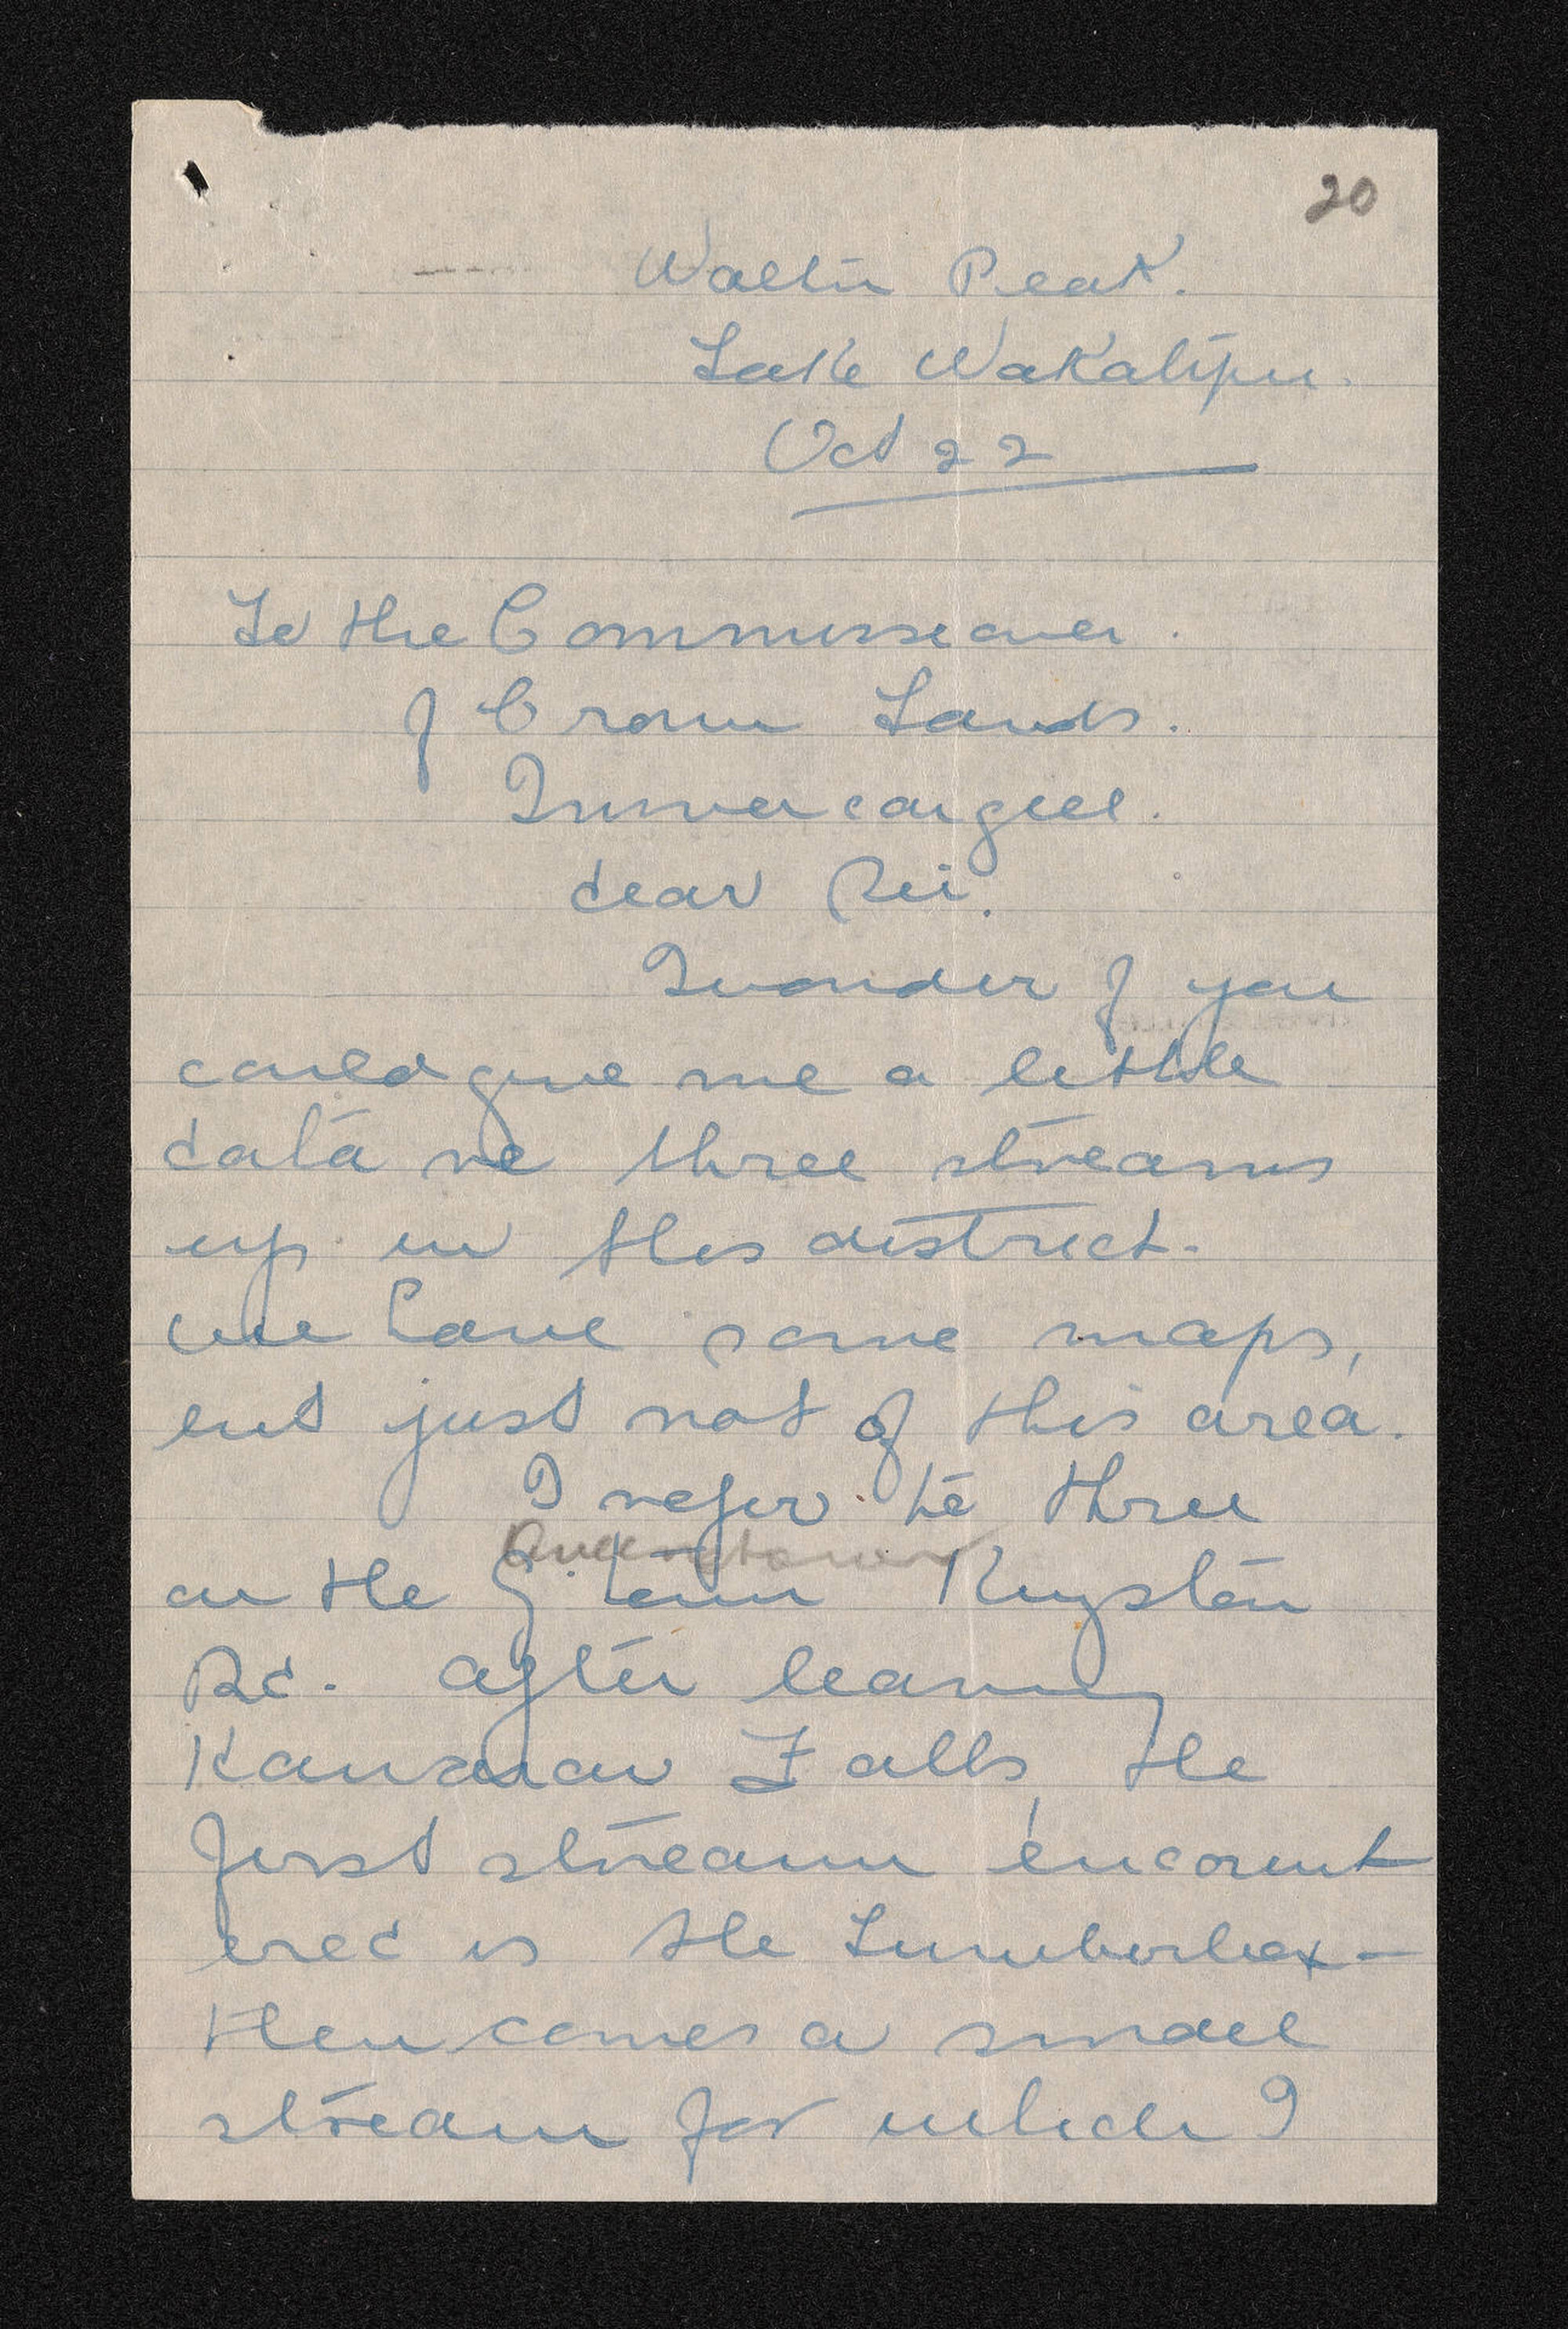 20
Walter Peak.
Lake Wakatipu.
Oct 22
To the Commissioner.
of Crown Lands.
Invercargill.
dear Sir.
I wonder if you
could give me a little
data re three streams
up in this district.
we have some maps,
but just not of this area.
I refer to three
Queenstown
on the Q. town Kingston
Rd. after leaving
Kawarau Falls, the
first stream encount
ered is the Lumberbox –
then comes a small
stream for which I